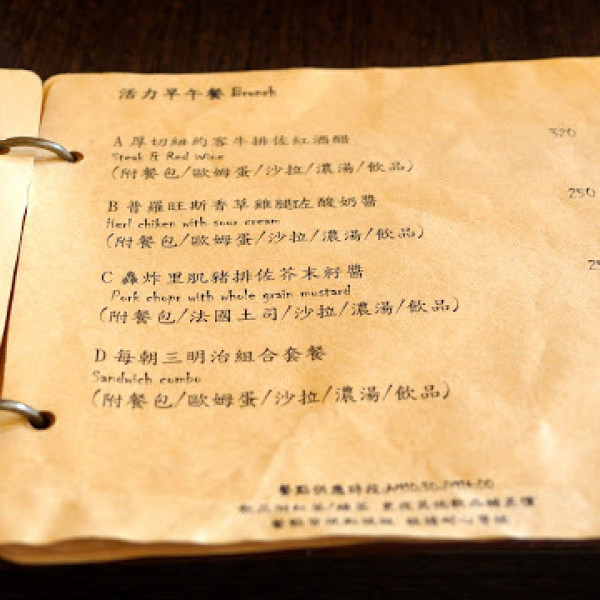 活力早午餐 Brunch
A 厚切紐約客牛排佐紅酒醋 320
Steak & Red Wine
(附餐包/歐姆蛋/沙拉/濃湯/飲品)
B 普羅旺斯香草雞腿佐酸奶醬 250
Herl chiken with sour cream
(附餐包/歐姆蛋/沙拉/濃湯/飲品)
C 轟炸里肌豬排佐芥末籽醬
Pork chopr with whole grain mustard
(附餐包/法國土司/沙拉/濃湯/飲品)
D 每朝三明治組合套餐
Sandwich combo
(附餐包/歐姆蛋/沙拉/濃湯/飲品)
餐點供應時段